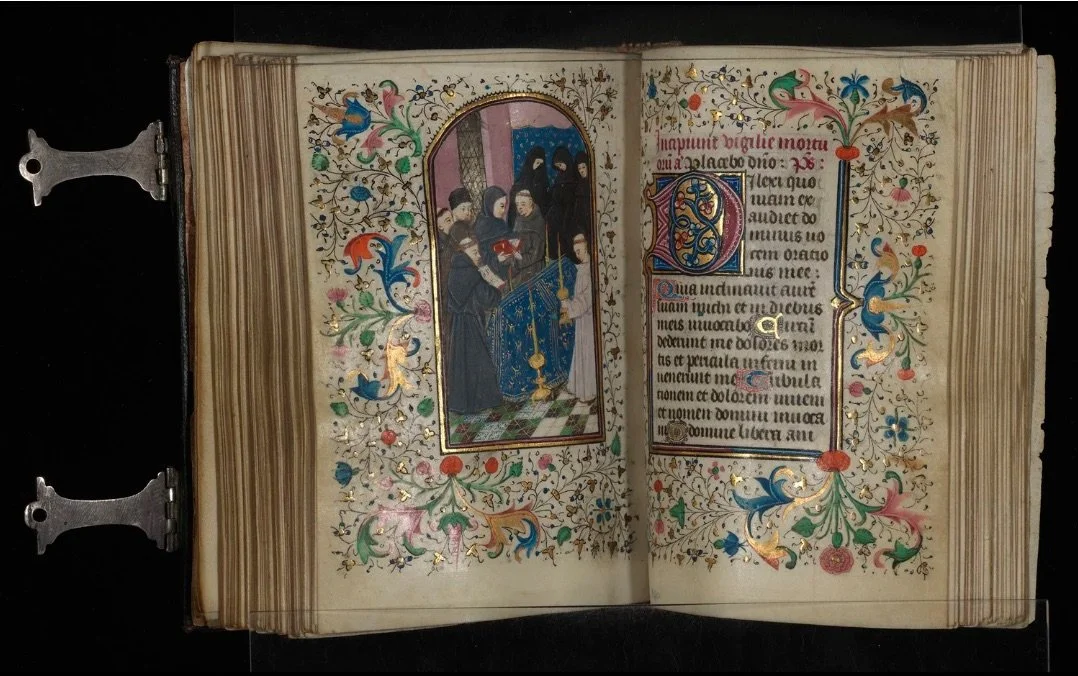 Incipiunt vigilie mortu
oru a Placebo dno : Ps :
Dilexi quo
niam ex
audiet do
minus vo
cem oratio
nis mee :
Quia inclinavit aure
suam michi et in diebus
meis invocabo Circu
dederunt me dolores mor
tis et pericula inferni in
venerunt me Tribula
tionem et dolorem inveni
et nomen domini invoca
vi O domine libera ani